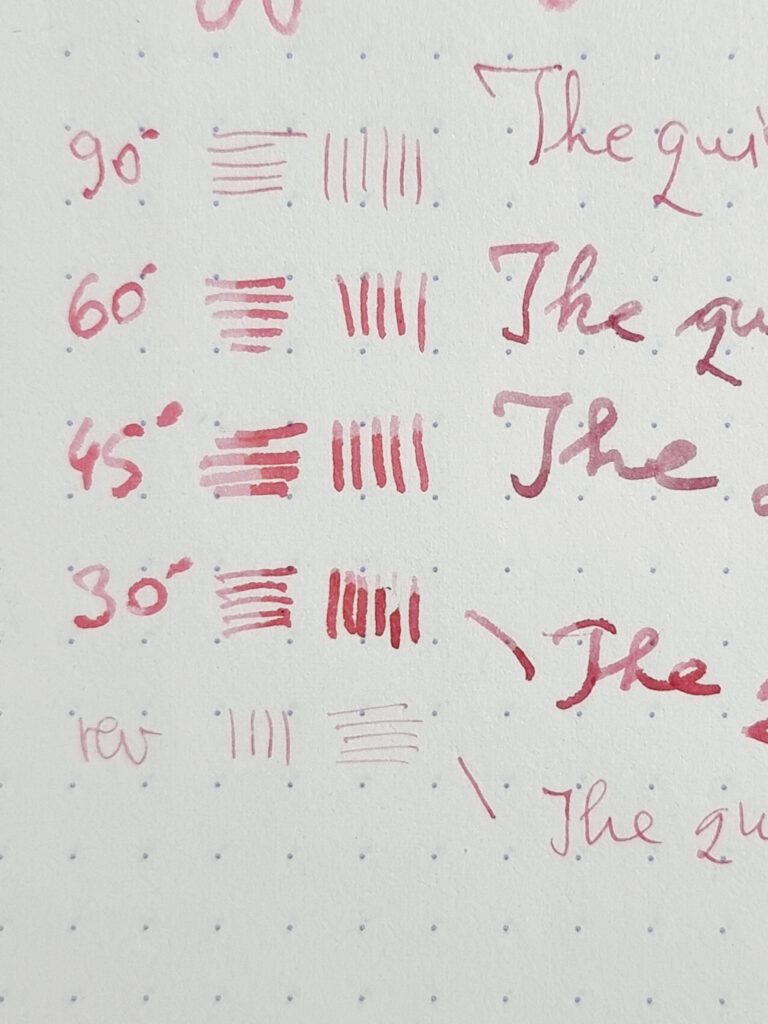 90° The qui
60° The qu
45°° The
30° The
rev The qu